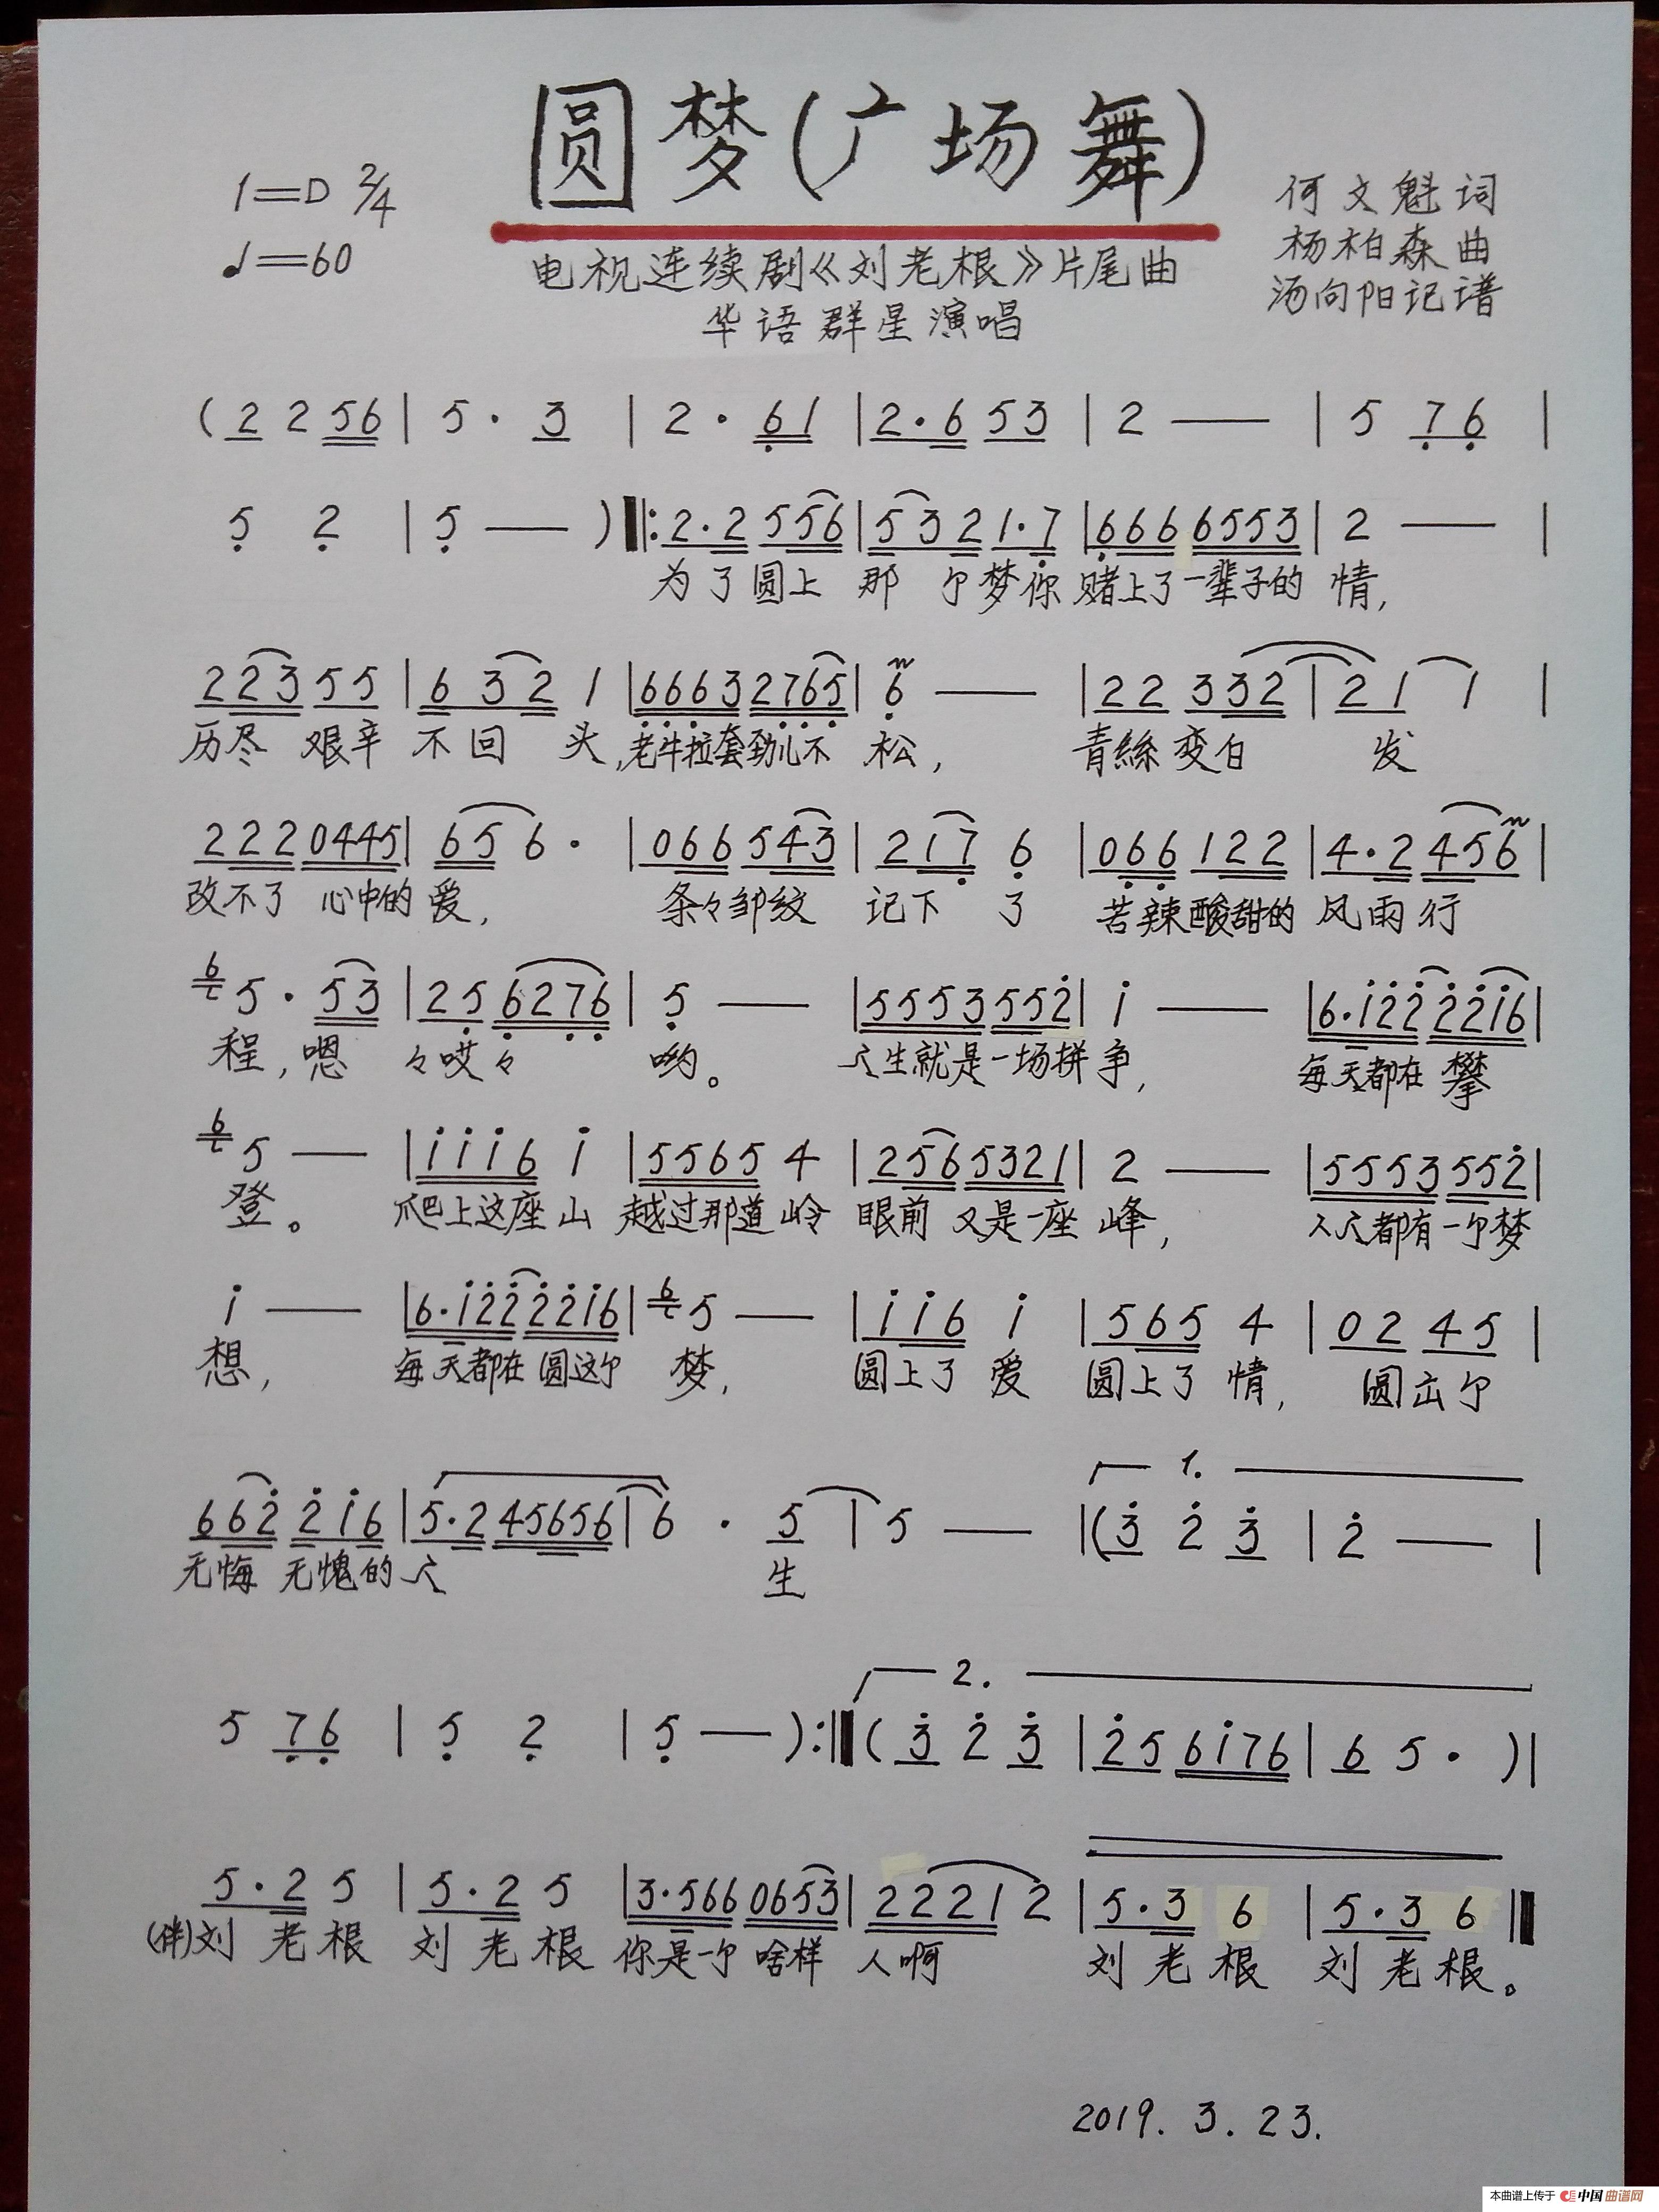 圆梦(广场舞)
1=D 2/4
♩=60
何文魁词
杨柏森曲
汤向阳记谱
电视连续剧《刘老根》片尾曲
华语群星演唱
(2 2 56 | 5 · 3 | 2 · 61 | 2·6 53 | 2 — | 5 76 |
5 2 | 5 — )‖: 2·2 556 | 5 3 2 1·7 | 666 6553 | 2 — |
为了圆上 那 个梦你 赌上了一辈子的 情,
223 55 | 6 32 1 | 6663 2765 | 6 — | 22 332 | 21 1 |
历尽 艰辛 不回 头,老牛拉套劲儿不 松, 青絲变白 发
222 0445 | 65 6 · | 066 543 | 217 6 | 066 122 | 4·2 456 |
改不了 心中的 爱, 条々邹纹 记下 了 苦辣酸甜的 风雨行
6 5 · 53 | 25 6276 | 5 — | 5553 552 | 1 — | 6·122 2216 |
程,嗯 々哎々 哟。 人生就是一场拼争, 每天都在 攀
6 5 — | 1116 1 | 5565 4 | 256 5321 | 2 — | 5553 552 |
登。 爬上这座山 越过那道岭 眼前 又是一座 峰, 人人都有一个梦
1 — | 6·122 2216 | 6 5 — | 116 1 | 565 4 | 02 45 |
想, 每天都在 圆这个 梦, 圆上了 爱 圆上了 情, 圆出个
1.
662 216 | 5·2 45656 | 6 · 5 | 5 — | (3 2 3 | 2 — |
无悔 无愧的 人 生
2.
5 76 | 5 2 | 5 — ):‖ ( 3 2 3 | 25 6176 | 6 5 · )|
5·2 5 | 5·2 5 | 3·566 0653 | 2221 2 | 5·3 6 | 5·3 6 ‖
(伴)刘 老根 刘 老根 你是一个 啥样 人啊 刘 老 根 刘 老根。
2019. 3. 23.
本曲谱上传于 中国曲谱网